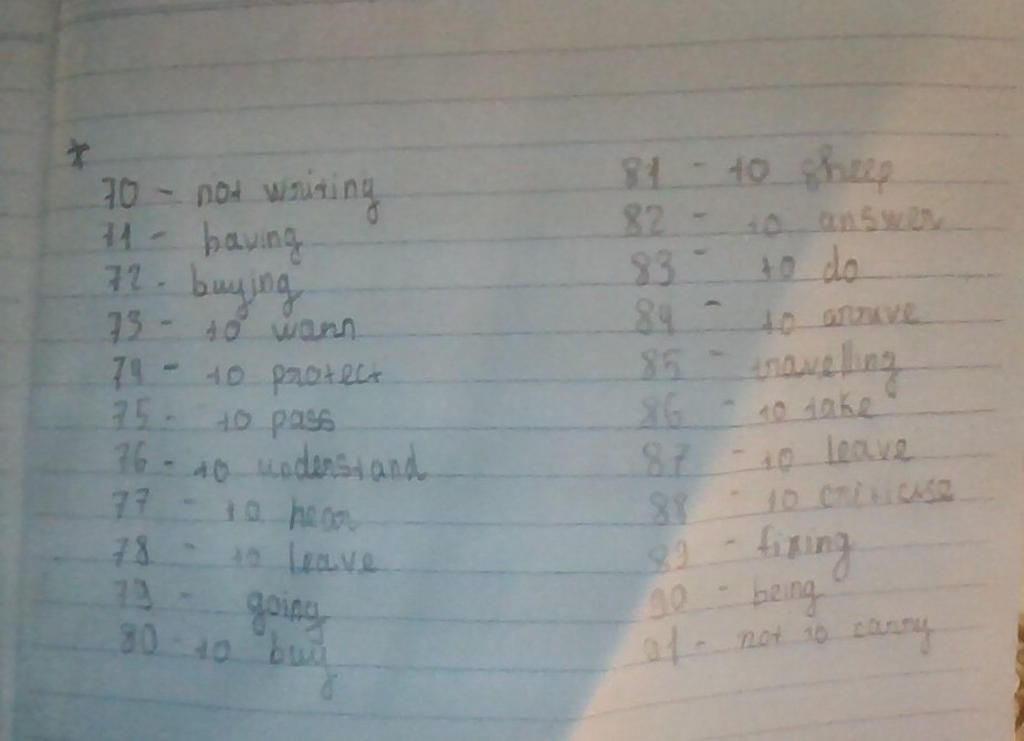 *
70 - not writing
71 - having
72 - buying
73 - to warn
74 - to protect
75 - to pass
76 - to understand
77 - to hear
78 - to leave
79 - going
80 - to buy
81 - to sheep
82 - to answer
83 - to do
84 - to arrive
85 - travelling
86 - to take
87 - to leave
88 - to criticise
89 - fixing
90 - being
91 - not to carry